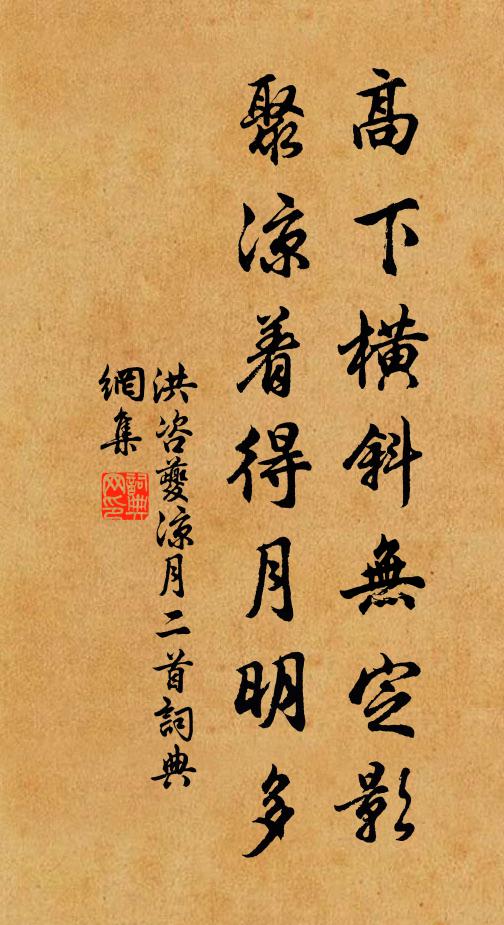 高下橫斜無定影
聚涼着得月明多
洪咨夔涼月二首詞典
網集
詞典
网印